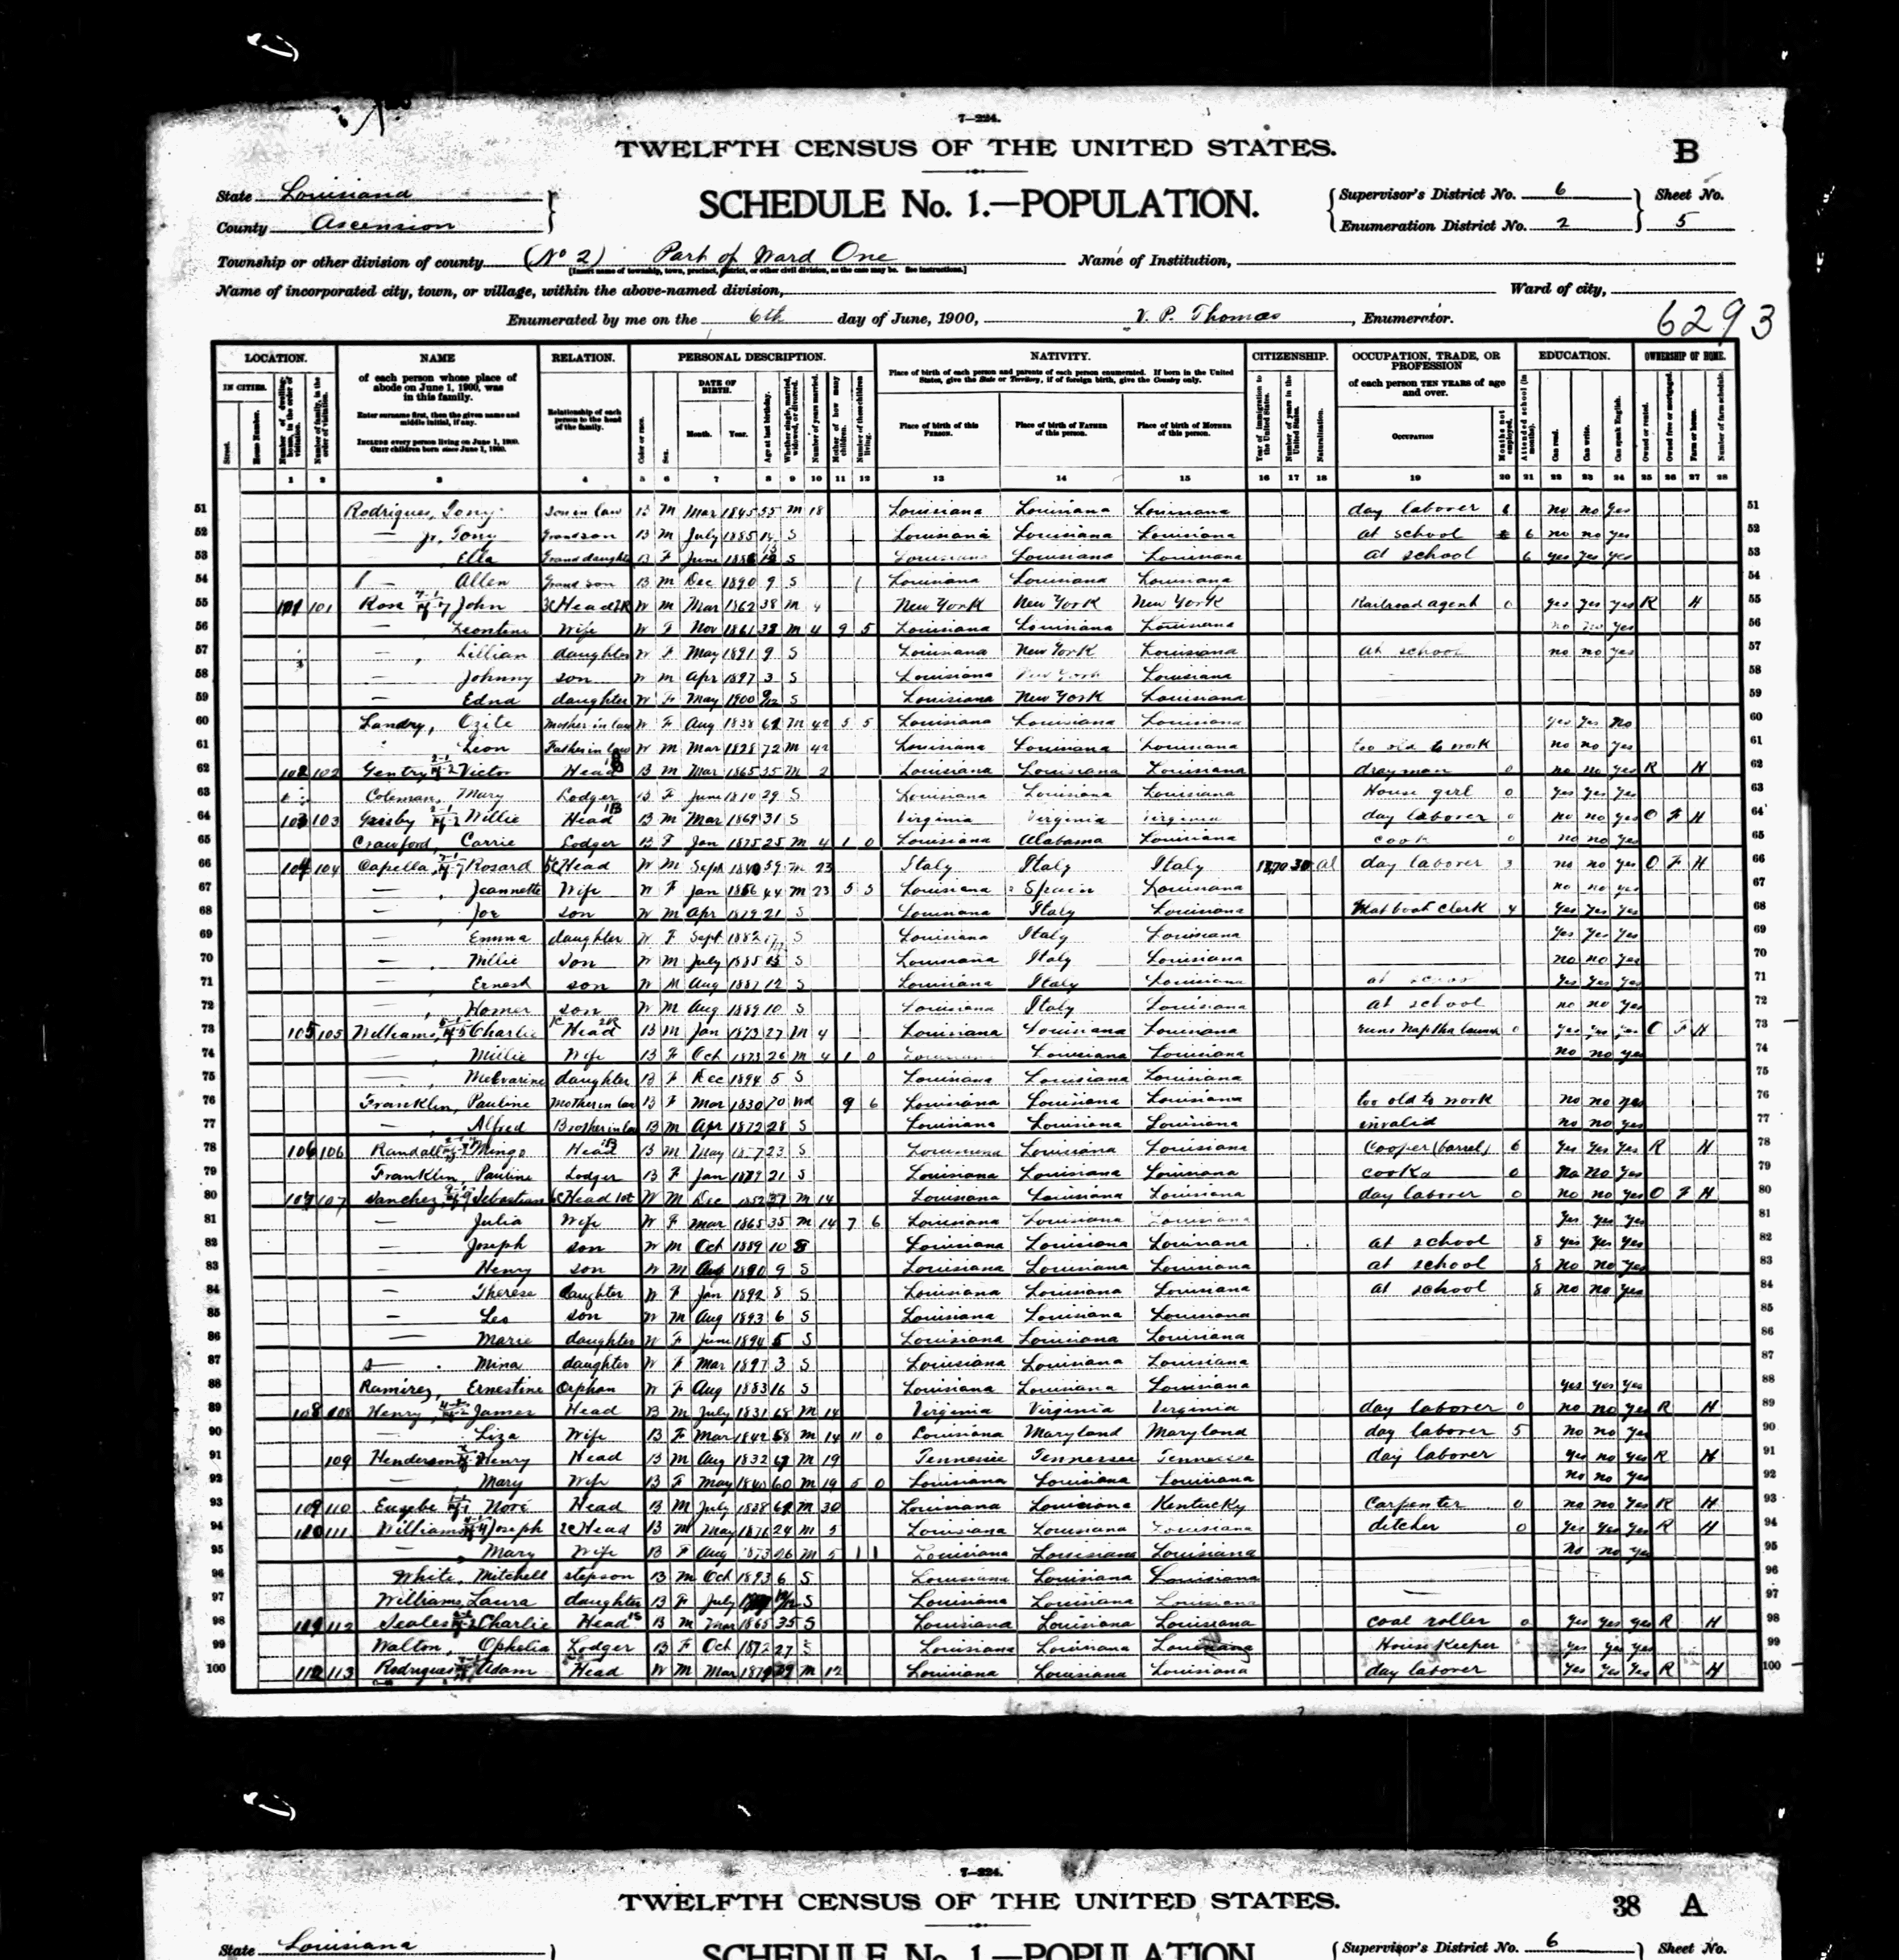 7—224.
TWELFTH CENSUS OF THE UNITED STATES.
B
State Louisiana
SCHEDULE No. 1.—POPULATION.
Supervisor's District No. 6
Sheet No.
County Ascension
Enumeration District No. 2
5
Township or other division of county (No 2) Part of Ward One
Name of Institution,
[Insert name of township, town, precinct, district, or other civil division, as the case may be. See instructions.]
Name of incorporated city, town, or village, within the above-named division,
Ward of city,
Enumerated by me on the 6th day of June, 1900, V. P. Thomas, Enumerator.
6293
LOCATION. NAME RELATION. PERSONAL DESCRIPTION. NATIVITY. CITIZENSHIP. OCCUPATION, TRADE, OR PROFESSION EDUCATION. OWNERSHIP OF HOME.
IN CITIES. of each person whose place of abode on June 1, 1900, was in this family.
Enter surname first, then the given name and middle initial, if any.
INCLUDE every person living on June 1, 1900. OMIT children born since June 1, 1900.
Relationship of each person to the head of the family.
DATE OF BIRTH. Month. Year.
Place of birth of each person and parents of each person enumerated. If born in the United States, give the State or Territory; if of foreign birth, give the Country only.
Place of birth of this PERSON. Place of birth of FATHER of this person. Place of birth of MOTHER of this person.
of each person TEN YEARS of age and over.
OCCUPATION
1 2 3 4 5 6 7 8 9 10 11 12 13 14 15 16 17 18 19 20 21 22 23 24 25 26 27 28
51 Rodrigues, Tony son in law B M Mar 1845 55 M 18 Louisiana Louisiana Louisiana day laborer 6 no no yes 51
52 — Jr, Tony Grandson B M July 1885 14 S Louisiana Louisiana Louisiana at school 6 no no yes 52
53 — Ella Grand daughter B F June S Louisiana Louisiana Louisiana at school 6 yes yes yes 53
54 — Allen Grand son B M Dec 1890 9 S Louisiana Louisiana Louisiana 54
55 101 101 Rose John Head W M Mar 1862 38 M 4 New York New York New York Railroad agent 0 yes yes yes R H 55
56 — Leontine Wife W F Nov 1861 38 M 4 9 5 Louisiana Louisiana Louisiana no no yes 56
57 — Lillian daughter W F May 1891 9 S Louisiana New York Louisiana at school no no yes 57
58 — Johnny son W M Apr 1897 3 S Louisiana New York Louisiana 58
59 — Edna daughter W F May 1900 S Louisiana New York Louisiana 59
60 Landry, Ozile Mother in law W F Aug 1838 M 42 5 5 Louisiana Louisiana Louisiana yes yes no 60
61 Leon Father in law W M Mar 1828 72 M 42 Louisiana Louisiana Louisiana too old to work no no yes 61
62 102 102 Gentry Victor Head B M Mar 1865 35 M 2 Louisiana Louisiana Louisiana drayman 0 no no yes R H 62
63 Coleman, Mary Lodger B F June 29 S Louisiana Louisiana Louisiana House girl 0 yes yes yes 63
64 103 103 Willie Head B M Mar 1869 31 S Virginia Virginia Virginia day laborer 0 no no yes O F H 64
65 Crawford, Carrie Lodger B F Jan 1875 25 M 4 1 0 Louisiana Alabama Louisiana cook 0 no no yes 65
66 104 104 Capella, Rosard Head W M Sept 1840 59 M 23 Italy Italy Italy 1870 30 al day laborer 3 no no yes O F H 66
67 — Jeannette Wife W F Jan 1856 44 M 23 5 5 Louisiana Spain Louisiana no no yes 67
68 — Joe son W M Apr 1879 21 S Louisiana Italy Louisiana clerk 4 yes yes yes 68
69 — Emma daughter W F Sept 1882 17 S Louisiana Italy Louisiana yes yes yes 69
70 — son W M July 1885 S Louisiana Italy Louisiana no no yes 70
71 — Ernest son W M Aug 1887 12 S Louisiana Italy Louisiana at school yes yes yes 71
72 — Homer son W M Aug 1889 10 S Louisiana Italy Louisiana at school no no yes 72
73 105 105 Williams, Charlie Head B M Jan 1873 27 M 4 Louisiana Louisiana Louisiana runs Naptha launch 0 O F H 73
74 — Millie Wife B F Oct 1873 26 M 4 1 0 Louisiana Louisiana Louisiana no no yes 74
75 — daughter B F Dec 1894 5 S Louisiana Louisiana Louisiana 75
76 Franklin, Pauline Mother in law B F Mar 1830 70 Wd 9 6 Louisiana Louisiana Louisiana too old to work no no yes 76
77 —, Alfred Brother in law B M Apr 1872 28 S Louisiana Louisiana Louisiana invalid no no yes 77
78 106 106 Randall Mingo Head B M May 23 S Louisiana Louisiana Louisiana Cooper (barrel) 6 yes yes yes R H 78
79 Franklin, Pauline Lodger B F Jan 1879 21 S Louisiana Louisiana Louisiana cook 0 no no yes 79
80 107 107 Sanchez, Sebastian Head W M Dec 1852 M 14 Louisiana Louisiana Louisiana day laborer 0 no no yes O F H 80
81 — Julia Wife W F Mar 1865 35 M 14 7 6 Louisiana Louisiana Louisiana yes yes yes 81
82 — Joseph son W M Oct 1889 10 S Louisiana Louisiana Louisiana at school 8 yes yes yes 82
83 — Henry son W M Aug 1890 9 S Louisiana Louisiana Louisiana at school 8 no no yes 83
84 — Therese daughter W F Jan 1892 8 S Louisiana Louisiana Louisiana at school 8 no no yes 84
85 — Leo son W M Aug 1893 6 S Louisiana Louisiana Louisiana 85
86 — Marie daughter W F June 1894 5 S Louisiana Louisiana Louisiana 86
87 — Mina daughter W F Mar 1897 3 S Louisiana Louisiana Louisiana 87
88 Ramirez, Ernestine Orphan W F Aug 1883 16 S Louisiana Louisiana Louisiana yes yes yes 88
89 108 108 Henry, James Head B M July 1831 68 M 14 Virginia Virginia Virginia day laborer 0 no no yes R H 89
90 — Liza Wife B F Mar 1842 58 M 14 11 0 Louisiana Maryland Maryland day laborer 5 no no yes 90
91 109 Henderson Henry Head B M Aug 1832 67 M 19 Tennessee Tennessee Tennessee day laborer yes no yes R H 91
92 — Mary Wife B F May 1840 60 M 19 5 0 Louisiana Louisiana Louisiana no no yes 92
93 109 110 Eusebe Head B M July 1838 M 30 Louisiana Louisiana Kentucky Carpenter 0 no no yes R H 93
94 110 111 Williams Joseph Head B M May 1876 24 M 5 Louisiana Louisiana Louisiana ditcher 0 yes yes yes R H 94
95 —, Mary Wife B F Aug 1873 26 M 5 1 1 Louisiana Louisiana Louisiana no no yes 95
96 White, Mitchell stepson B M Oct 1893 6 S Louisiana Louisiana Louisiana 96
97 Williams, Laura daughter B F July S Louisiana Louisiana Louisiana 97
98 112 Seales Charlie Head B M Mar 1865 35 S Louisiana Louisiana Louisiana coal roller 0 yes yes yes R H 98
99 Walton, Ophelia Lodger B F Oct 1872 27 S Louisiana Louisiana Louisiana House Keeper yes yes yes 99
100 112 113 Rodrigues Adam Head W M Mar M 12 Louisiana Louisiana Louisiana day laborer yes yes yes R H 100
7—224.
TWELFTH CENSUS OF THE UNITED STATES.
38 A
State Louisiana
SCHEDULE No. 1.—POPULATION.
Supervisor's District No. 6
Sheet No.